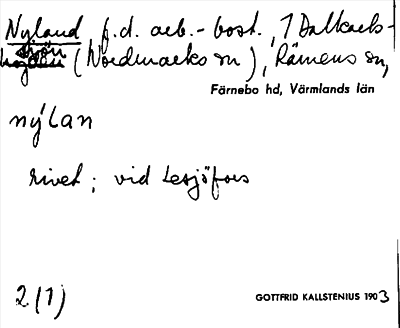 Nyland f.d. arb.-bost., 1 Dalkarls-
sjön (Nordmarks sn), Rämens sn,
Färnebo hd, Värmlands län
nýlan
rivet; vid Lesjöfors
2(1)
GOTTFRID KALLSTENIUS 1903